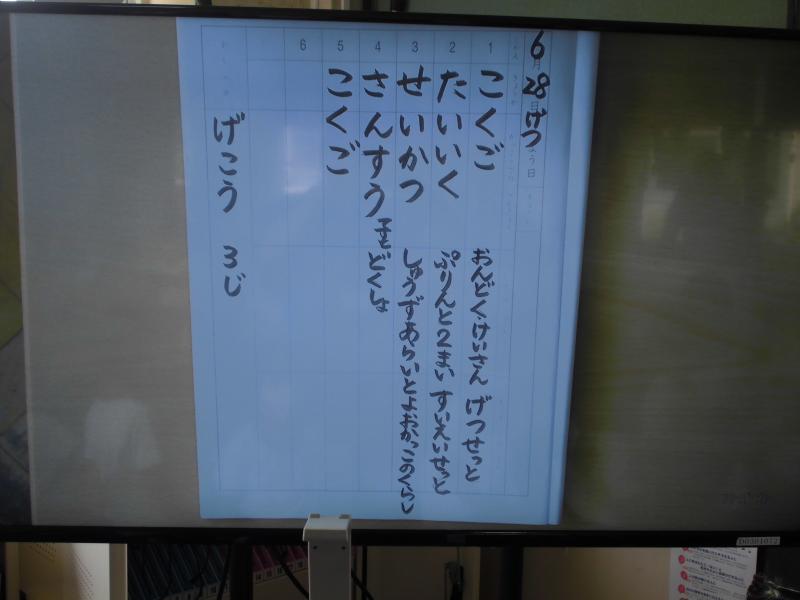 6月28日げつよう日
1 こくご
2 たいいく
3 せいかつ
4 さんすう
5 こくご
6
おんどく・けいさん げつせっと
ぷりんと2まい すいえいせっと
しゅうずあらいとよおかっこのくらし
どくしょ
げこう 3じ
D0301072